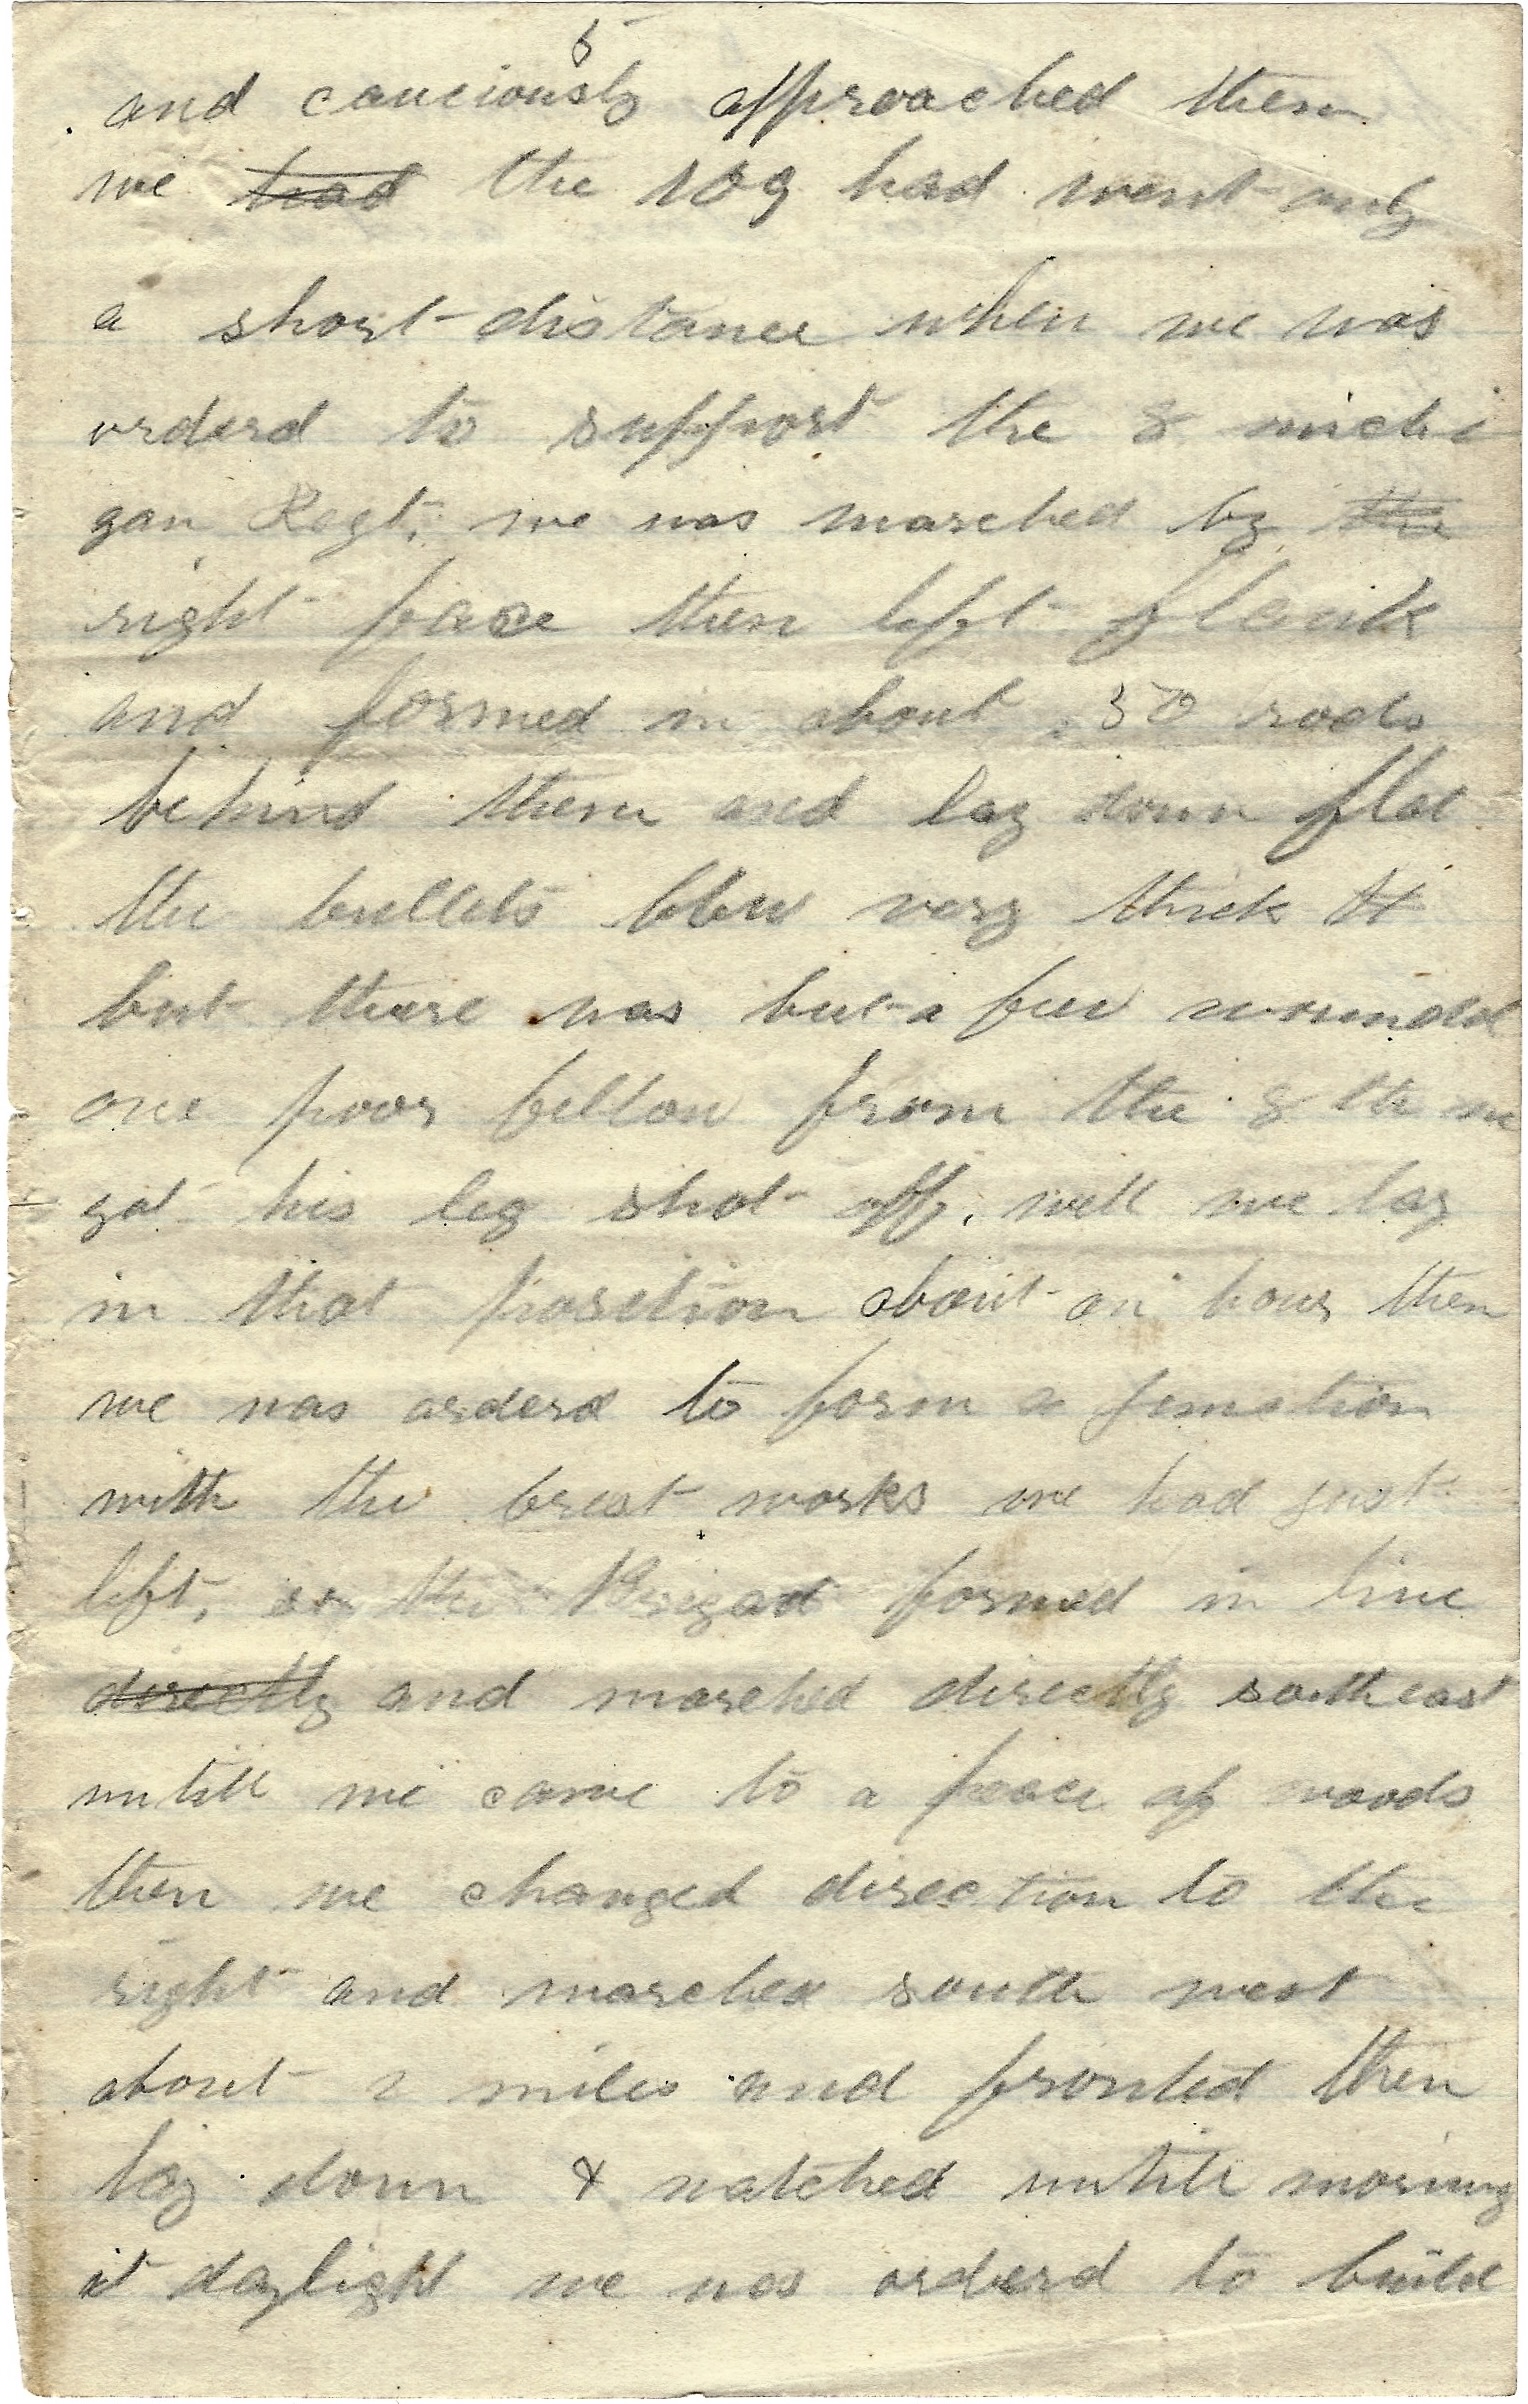 5
and cauciously approached them
we had the 109 had went only
a short distance when we was
orderd to support the 8 michi
gan Regt. we was marched by the
right face then left flank
and formed in about 30 rods
behind them and lay down flat
the bullets flew very thick &
but there was but a few woundd
one poor fellow from the 8 th m
got his leg shot off. well we lay
in that position about an hour then
we was orderd to form a junction
with the brest works we had just
left, so the Brigad formed in line
directly and marched directly southeast
untill we came to a peace of woods
then we changed direction to the
right and marched south west
about 2 miles and fronted then
lay down & watched untill morning
at daylight we was orderd to build